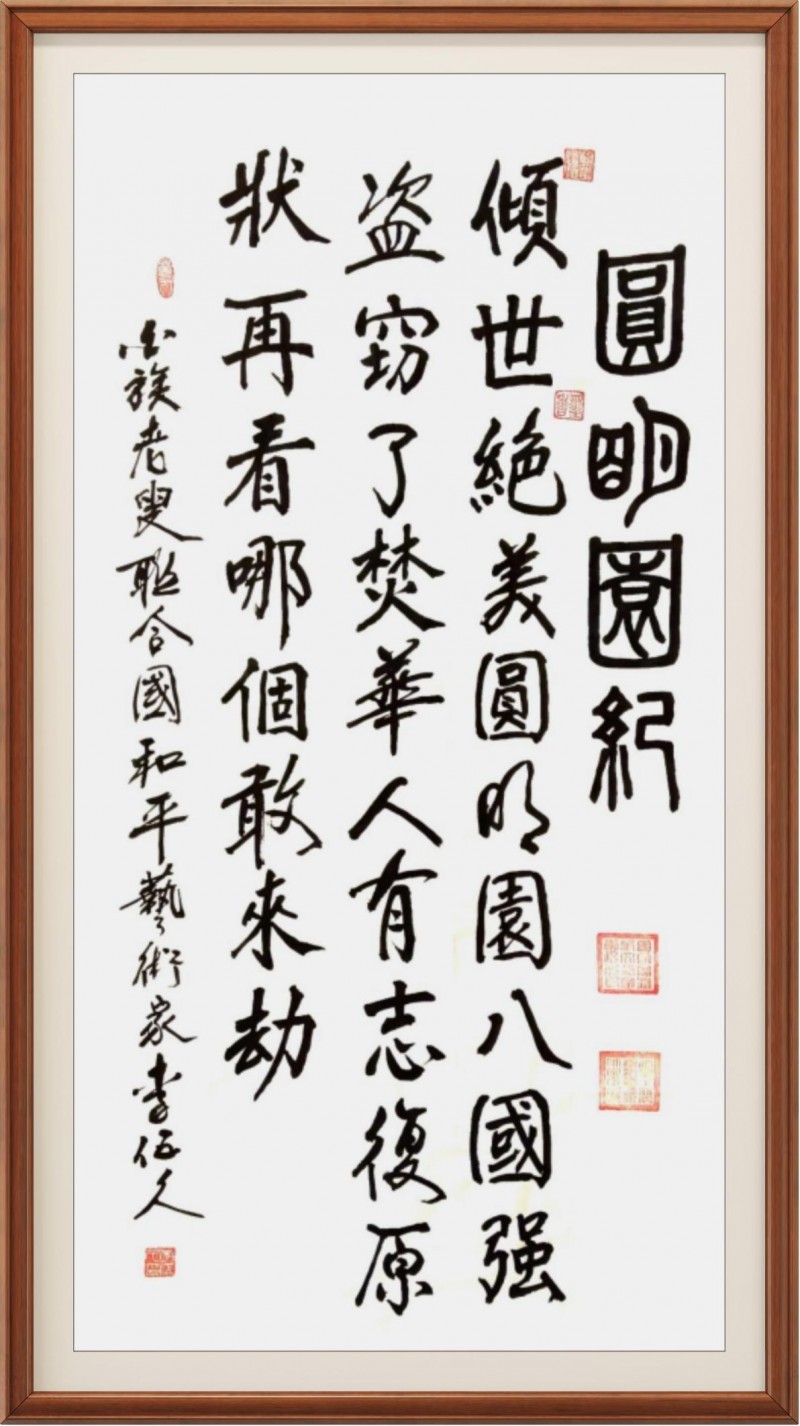 圓明園紀
傾世絶美圓明園八國强
盗窃了焚華人有志復原
狀再看哪個敢來劫
族老叟联合國和平藝術家李伍人